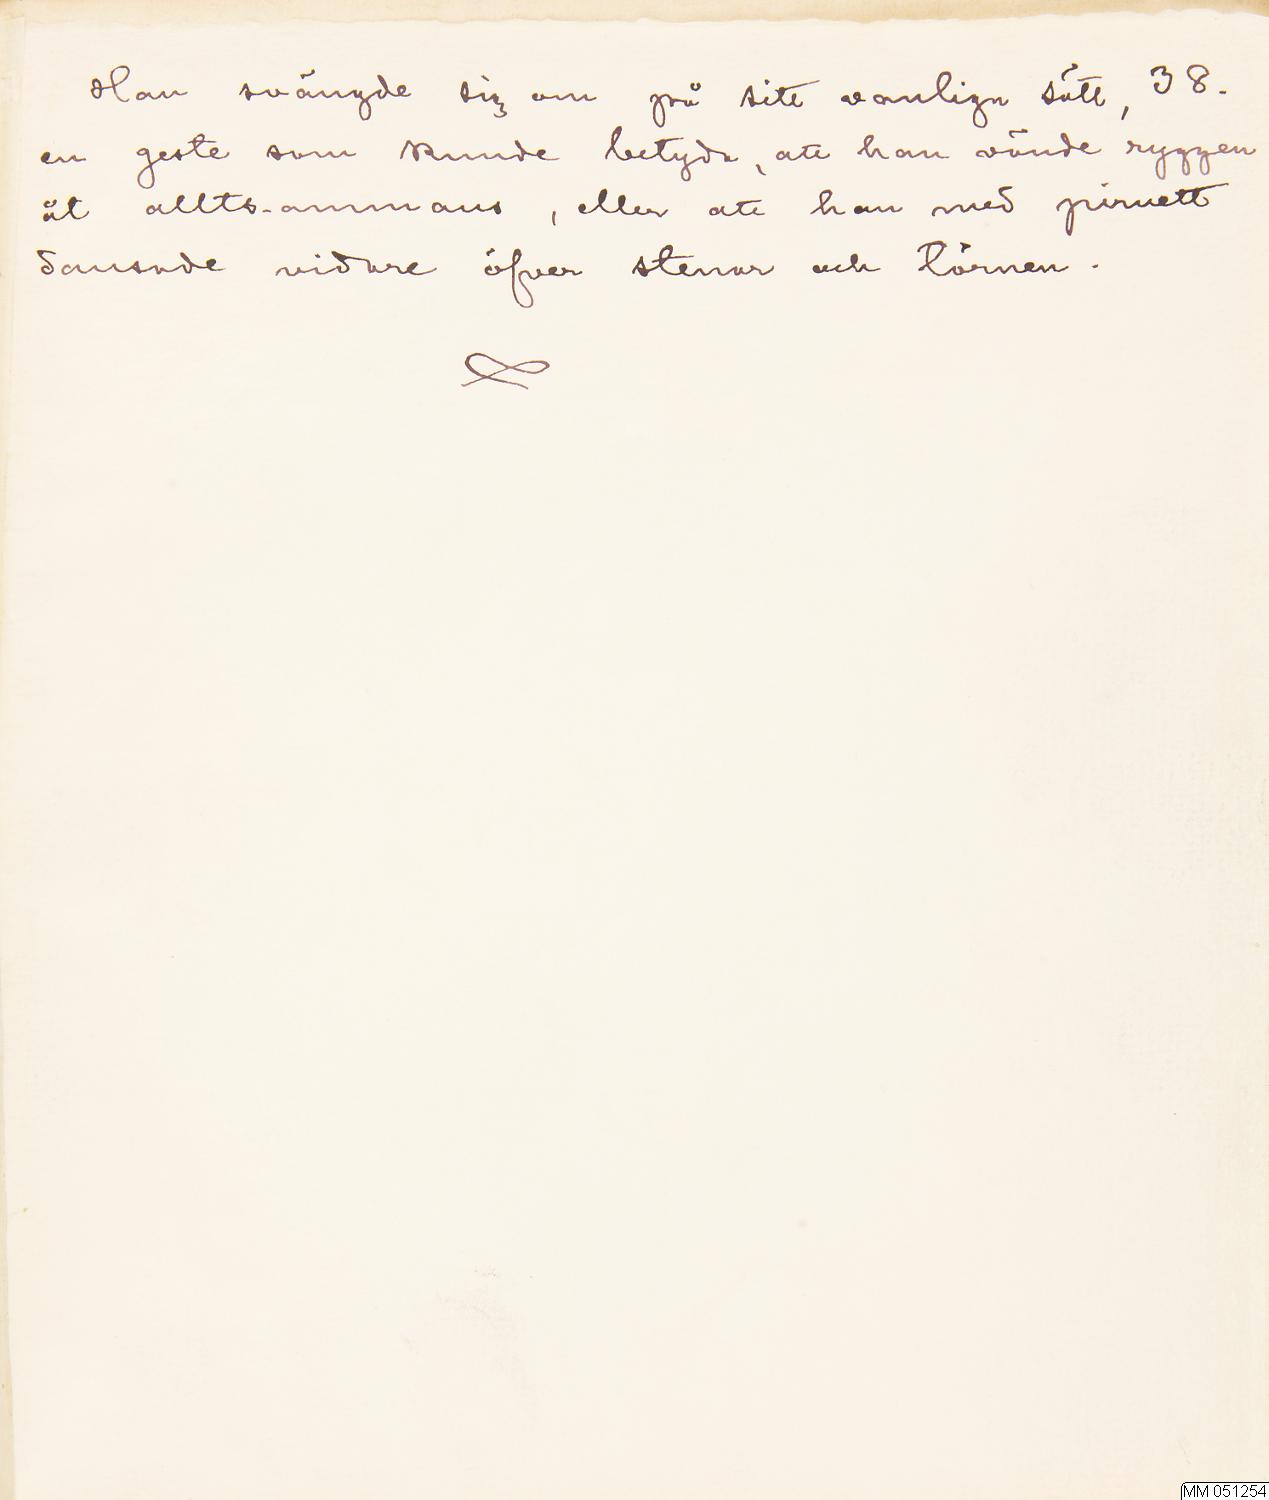 Han svängde sig om på sitt vanliga sätt, 38.
en geste som kunde betyda, att han vände ryggen
åt allts-ammans, eller att han med piruett
dansade vidare öfver stenar och törnen.
MM 051254